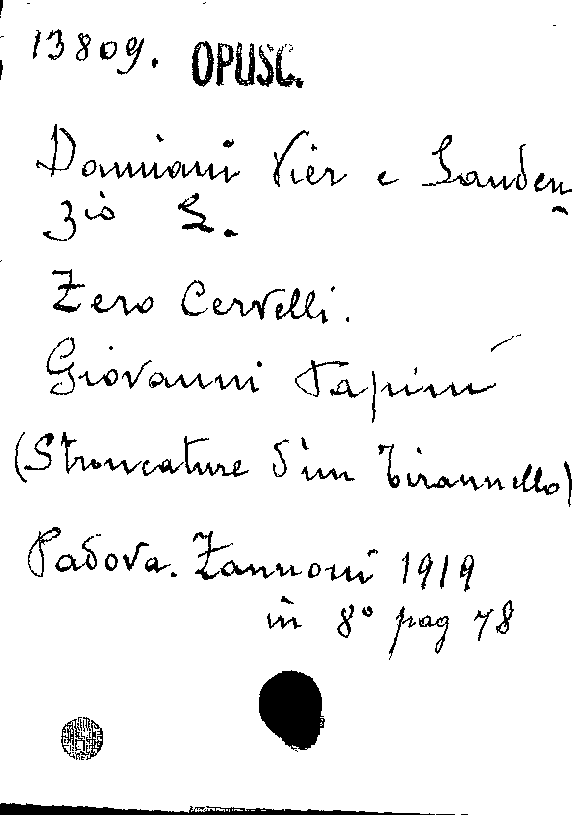 13809. OPUSC.
Damiani Vier e Gauden
zio S.
Zero Cervelli.
Giovanni Papini
(Stroncature d'un Tirannello)
Padova. Zannoni 1919
in 8° pag 78